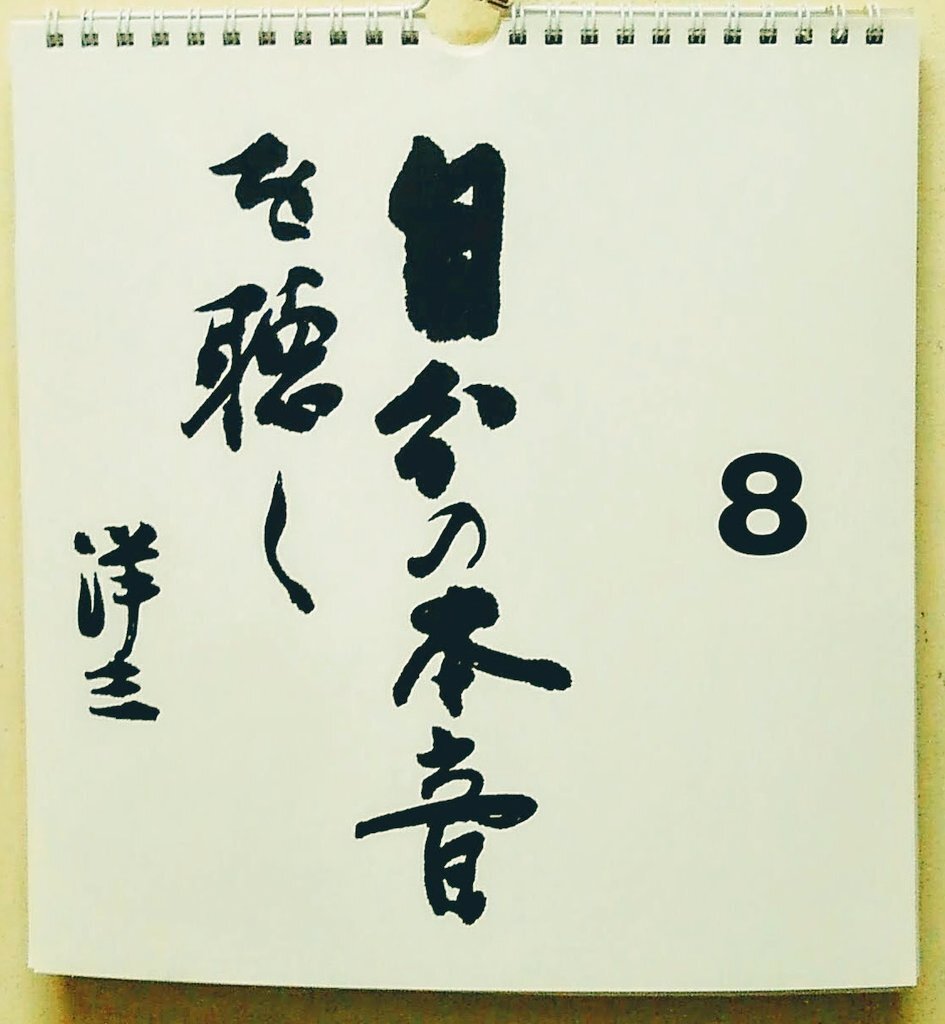 8
自分の本音
を聴く
洋三